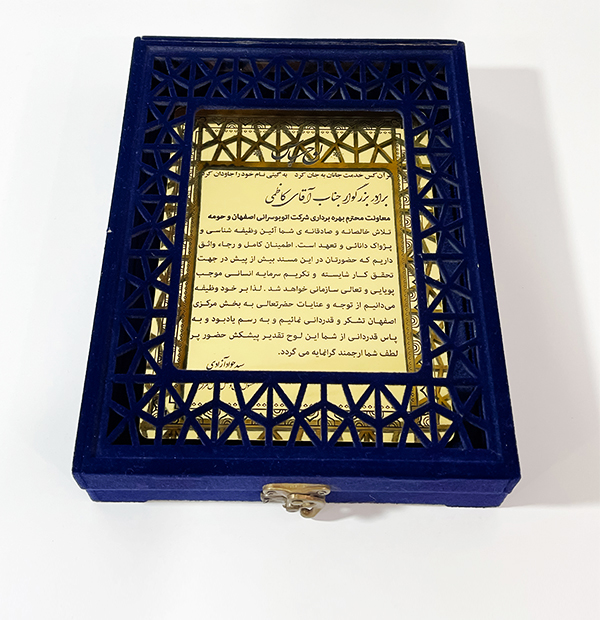 هر آن کس خدمت جانان به جان کرد به گیتی نام خود را جاودان کرد
برادر بزرگوار جناب آقای کاظمی
معاونت محترم بهره برداری شرکت اتوبوسرانی اصفهان و حومه
تلاش خالصانه و صادقانه ی شما آئین وظیفه شناسی و
پژواک دانائی و تعهد است. اطمینان کامل و رجاء واثق
داریم که حضورتان در این مسند بیش از پیش در جهت
تحقق کار شایسته و تکریم سرمایه انسانی موجب
پویایی و تعالی سازمانی خواهد شد. لذا بر خود وظیفه
می‌دانیم از توجه و عنایات حضرتعالی به بخش مرکزی
اصفهان تشکر و قدردانی نمائیم و به رسم یادبود و به
پاس قدردانی از شما این لوح تقدیر پیشکش حضور پر
لطف شما ارجمند گرانمایه می گردد.
سید جواد آزادی